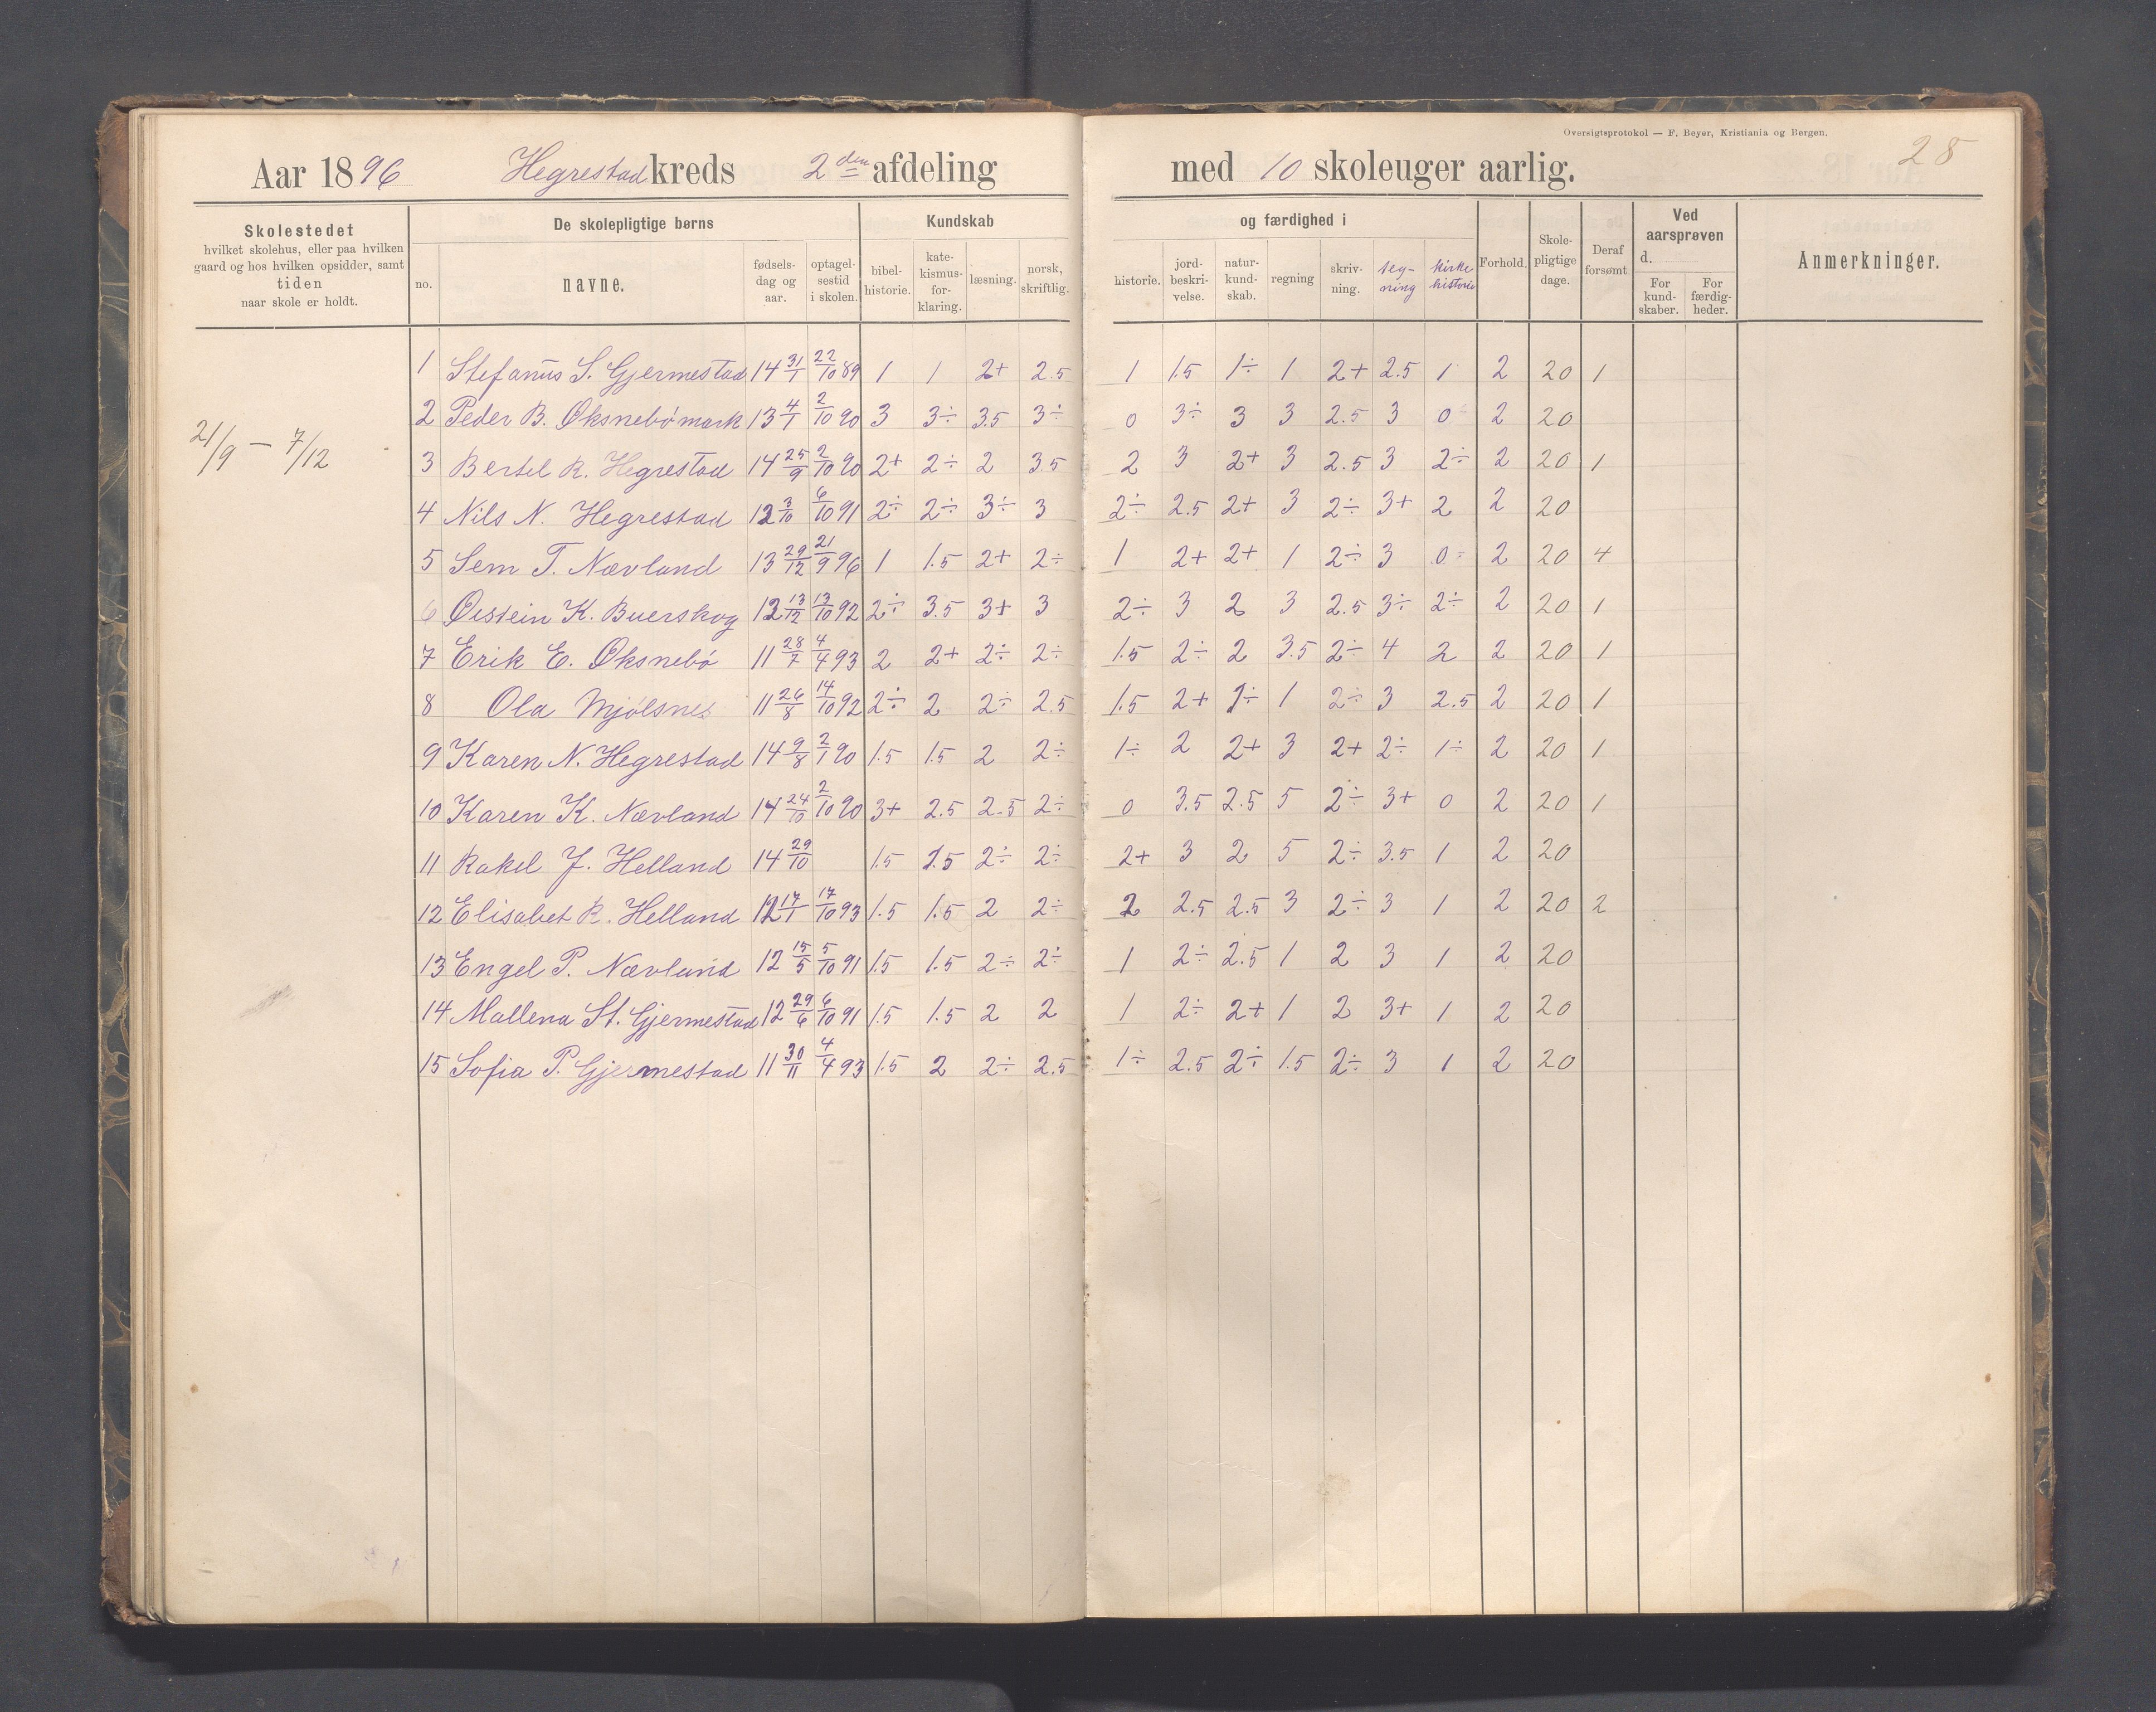 Oversigtsprotokol — F. Beyer, Kristiania og Bergen.
28
Aar 1896 Hegrestad kreds 2den afdeling med 10 skoleuger aarlig.
Skolestedet
hvilket skolehus, eller paa hvilken
gaard og hos hvilken opsidder, samt
tiden
naar skole er holdt.
De skolepligtige børns
no.
navne.
fødsels-
dag og
aar.
optagel-
sestid
i skolen.
Kundskab
bibel-
historie.
kate-
kismus-
for-
klaring.
læsning.
norsk,
skriftlig.
og færdighed i
historie.
jord-
beskri-
velse.
natur-
kund-
skab.
regning
skriv-
ning.
teg-
ning
kirke
historie
Forhold.
Skole-
pligtige
dage.
Deraf
forsømt
Ved
aarsprøven
d.
For
kund-
skaber.
For
færdig-
heder.
Anmerkninger.
21/9 — 7/12
1 Stefanus S. Gjermestad 14 31/1 22/10 89 1 1 2+ 2.5 1 1.5 1÷ 1 2+ 2.5 1 2 20 1
2 Peder B. Øksnebømark 13 4/1 2/10 90 3 3÷ 3.5 3÷ 0 3÷ 3 3 2.5 3 0 2 20
3 Bertel R. Hegrestad 14 25/9 2/10 90 2+ 2÷ 2 3.5 2 3 2+ 3 2.5 3 2÷ 2 20 1
4 Nils N. Hegrestad 12 3/10 6/10 91 2÷ 2÷ 3÷ 3 2÷ 2.5 2+ 3 2÷ 3+ 2 2 20
5 Sem T. Nævland 13 29/12 21/9 96 1 1.5 2+ 2÷ 1 2+ 2+ 1 2÷ 3 0 2 20 4
6 Øistein K. Buerskog 12 13/12 13/10 92 2÷ 3.5 3+ 3 2÷ 3 2 3 2.5 3÷ 2÷ 2 20 1
7 Erik E. Øksnebø 11 28/7 4/4 93 2 2+ 2÷ 2÷ 1.5 2÷ 2 3.5 2÷ 4 2 2 20 1
8 Ola Mjølsnes 11 26/8 14/10 92 2÷ 2 2÷ 2.5 1.5 2+ 1÷ 1 2÷ 3 2.5 2 20 1
9 Karen N. Hegrestad 14 9/8 2/1 90 1.5 1.5 2 2÷ 1÷ 2 2+ 3 2+ 2÷ 1÷ 2 20 1
10 Karen K. Nævland 14 24/10 2/10 90 3+ 2.5 2.5 2÷ 0 3.5 2.5 5 2÷ 3+ 0 2 20 1
11 Rakel J. Helland 14 29/10 1.5 1.5 2÷ 2÷ 2+ 3 2 5 2÷ 3.5 1 2 20
12 Elisabet R. Helland 12 17/1 17/10 93 1.5 1.5 2 2÷ 2 2.5 2.5 3 2÷ 3 1 2 20 2
13 Engel P. Nævland 12 15/5 5/10 91 1.5 1.5 2÷ 2÷ 1 2÷ 2.5 1 2 3 1 2 20
14 Mallena St. Gjermestad 12 29/6 6/10 91 1.5 1.5 2 2 1 2÷ 2+ 1 2 3+ 1 2 20
15 Sofia P. Gjermestad 11 30/11 4/4 93 1.5 2 2÷ 2.5 1÷ 2.5 2÷ 1.5 2÷ 3 1 2 20